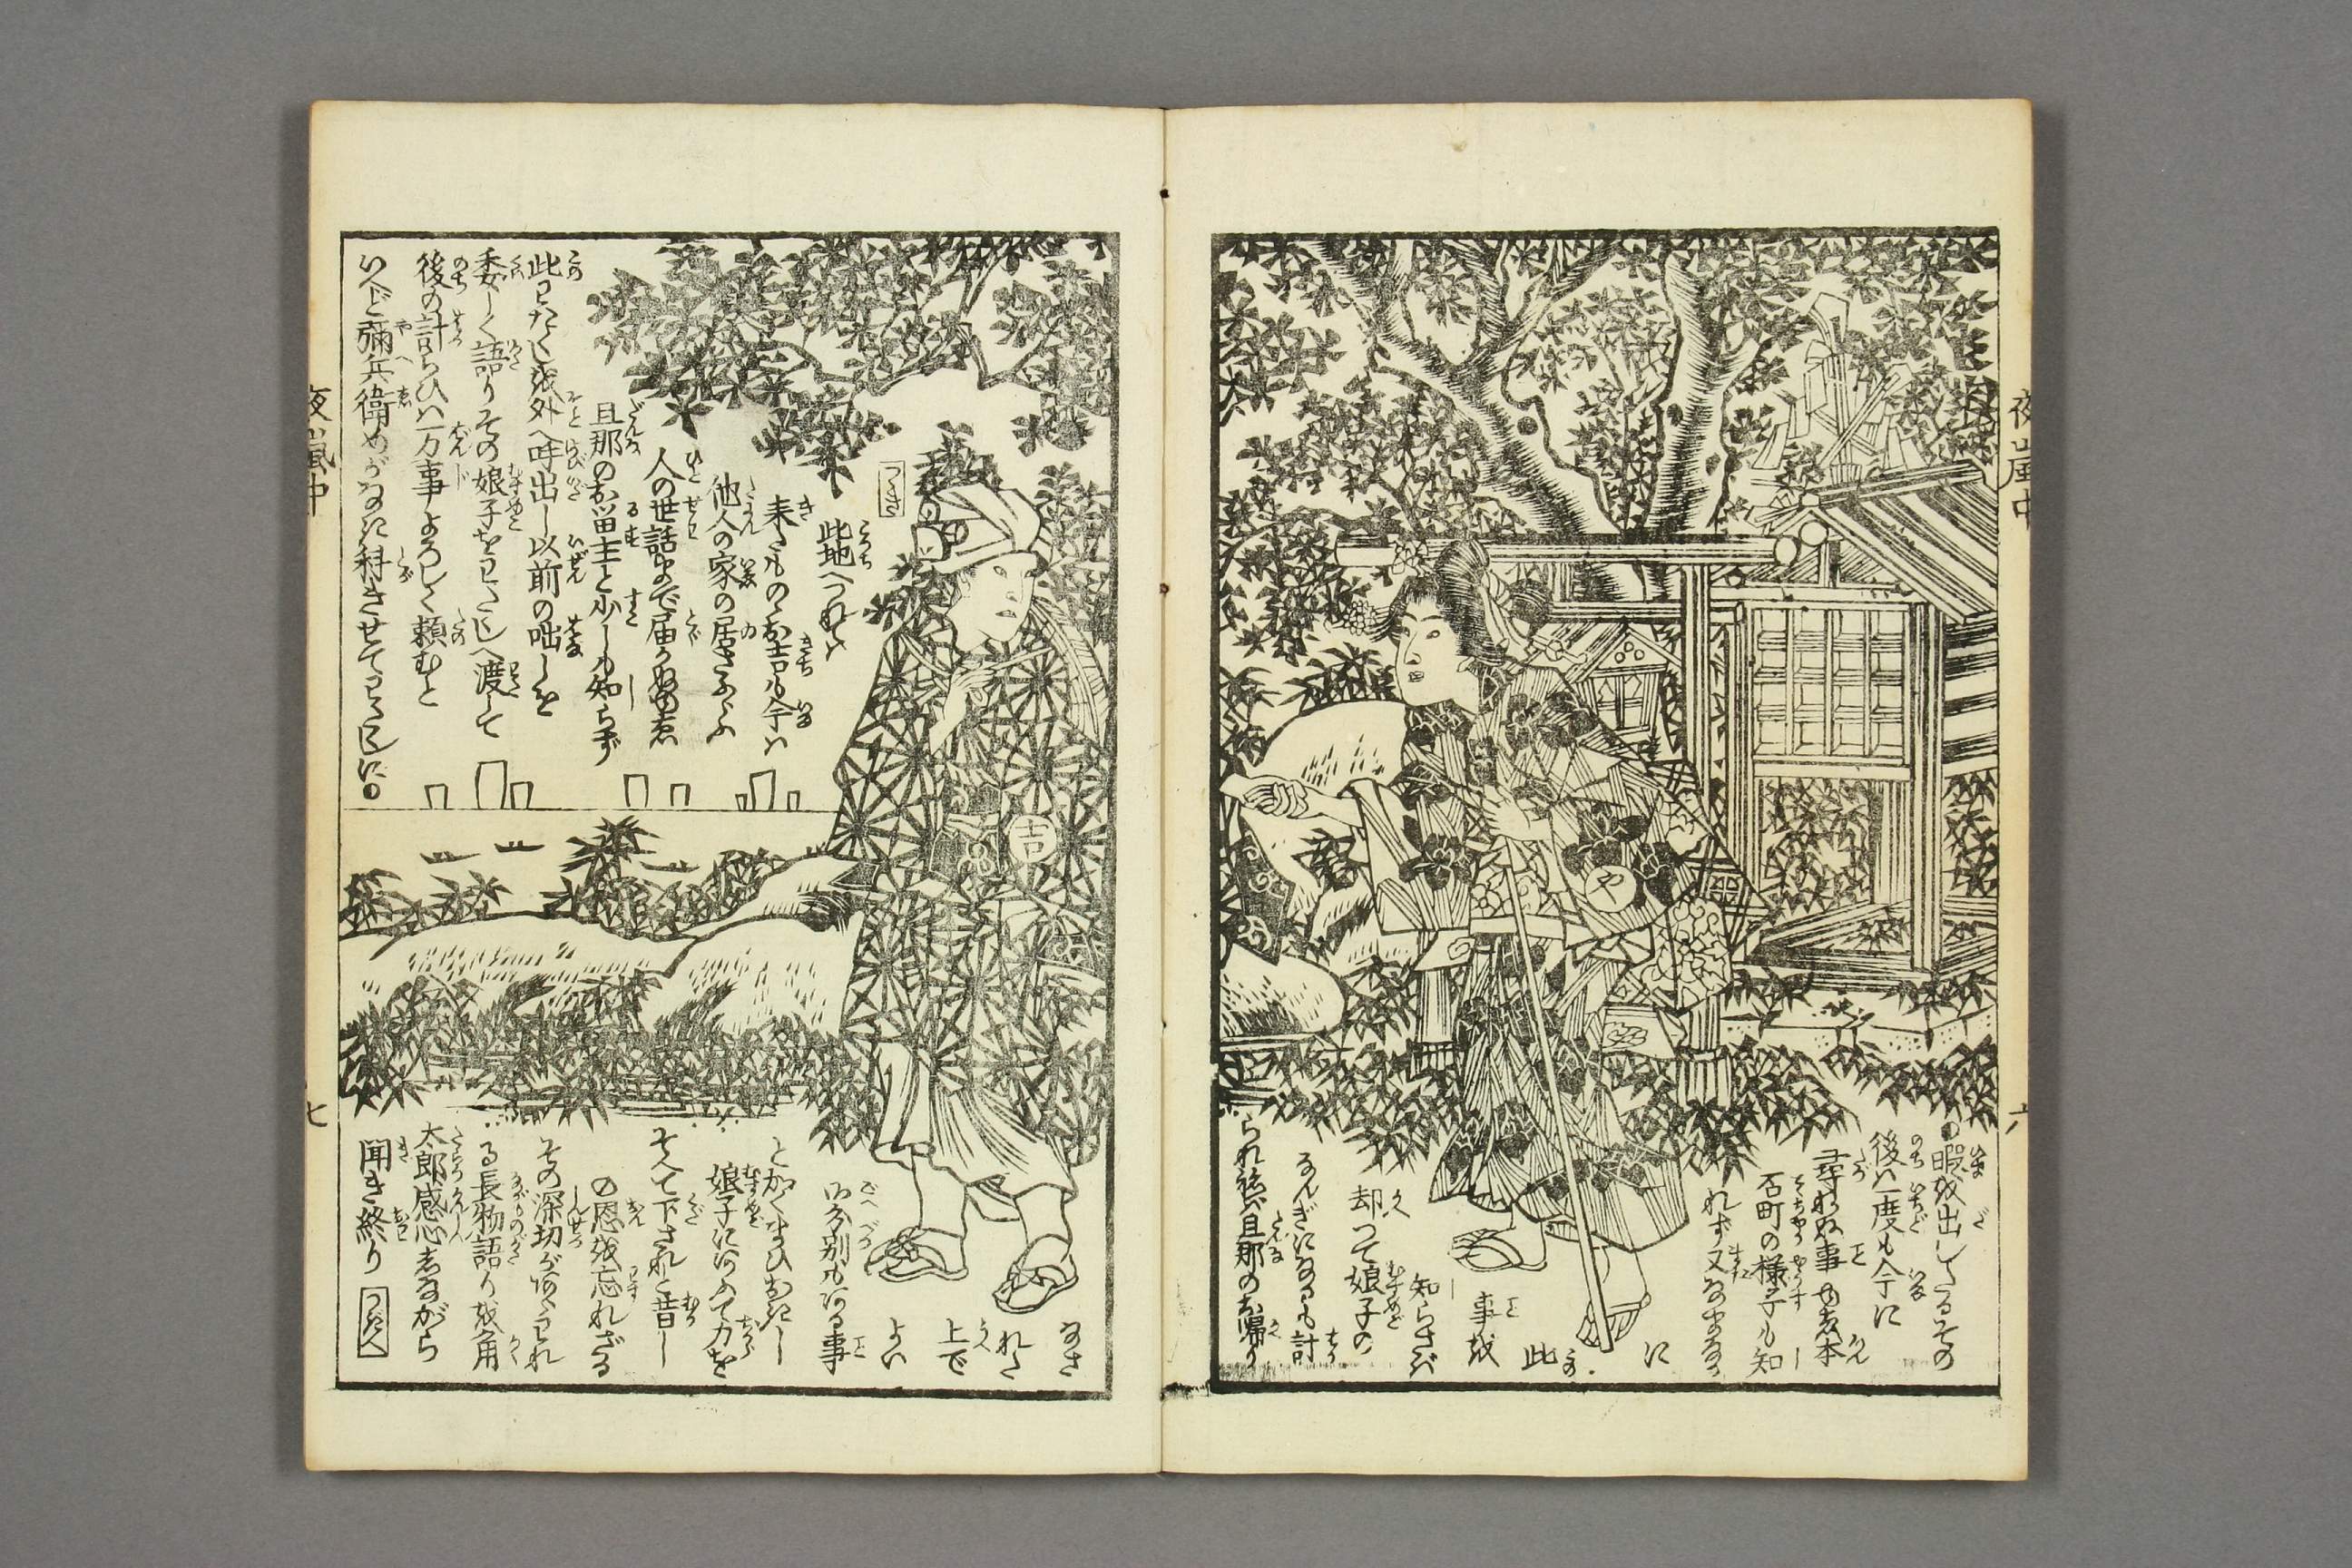 夜嵐中
六
や
●暇を出したるその
後は一度も今に
尋ねぬ事ゆゑ本
石町の様子も知
れず又なまなか
に
此
事を
知らさば
却つて娘子の
なんぎになるも計
られねば旦那のお帰り
つゞき
此地へつれ
来たもののお吉も今は
他人の家の居さふらふ
人の世話まで届かぬゆゑ
旦那のお留主と少しも知らず
此わたくしを外へ呼出し以前の咄しを
委しく語りその娘子をわたしへ渡して
後の計らひは万事よろしく頼むと
いへど彌兵衛めがなに科きせてわたしに●
吉
なさ
れた
上で
よい
御分別もある事
とかくまひおきし
娘子にあふて力を
そへて下されと昔し
の恩を忘れざる
その深切があらはれ
る長物語りを角
太郎感心しながら
聞き終り つぎへ
夜嵐中
七